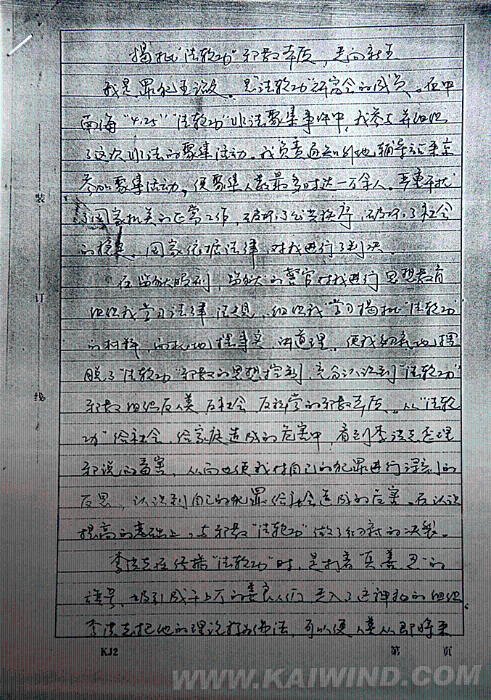 揭批"法轮功"邪教本质,走向新生
我是罪犯王治文,是"法轮功"研究会的成员。在中
南海"4.25""法轮功"非法聚集事件中,我参与并组织
了这次非法的聚集活动。我负责通知外地辅导站来京
参加聚集活动。使聚集人数最多时达一万余人。严重干扰
了国家机关的正常工作,破坏了公共秩序,破坏了社会
的稳定。国家依据法律,对我进行了判决。
在监狱服刑,监狱的警官对我进行思想教育
组织我学习法律法规,组织我学习揭批"法轮功"
的材料,向我们摆事实、讲道理,使我逐渐地摆
脱了"法轮功"邪教的思想控制,充分认识到"法轮功"
邪教组织反人类、反社会、反科学的邪教本质。从"法轮
功"给社会、给家庭造成的危害中,看到李洪志歪理
邪说的毒害,从而也使我对自己的犯罪进行深刻的
反思,认识到自己的犯罪给社会造成的危害。在认识
提高的基础上,与邪教"法轮功"做了彻底的决裂。
李洪志在传播"法轮功"时,是打着"真、善、忍"的
旗号,吸引成千上万的善良人们走入了这神秘的组织
李洪志把他的理论称为佛法,可以使人类从即将来
装
订
线
KJ2
第 页
WWW.KAIWIND.COM